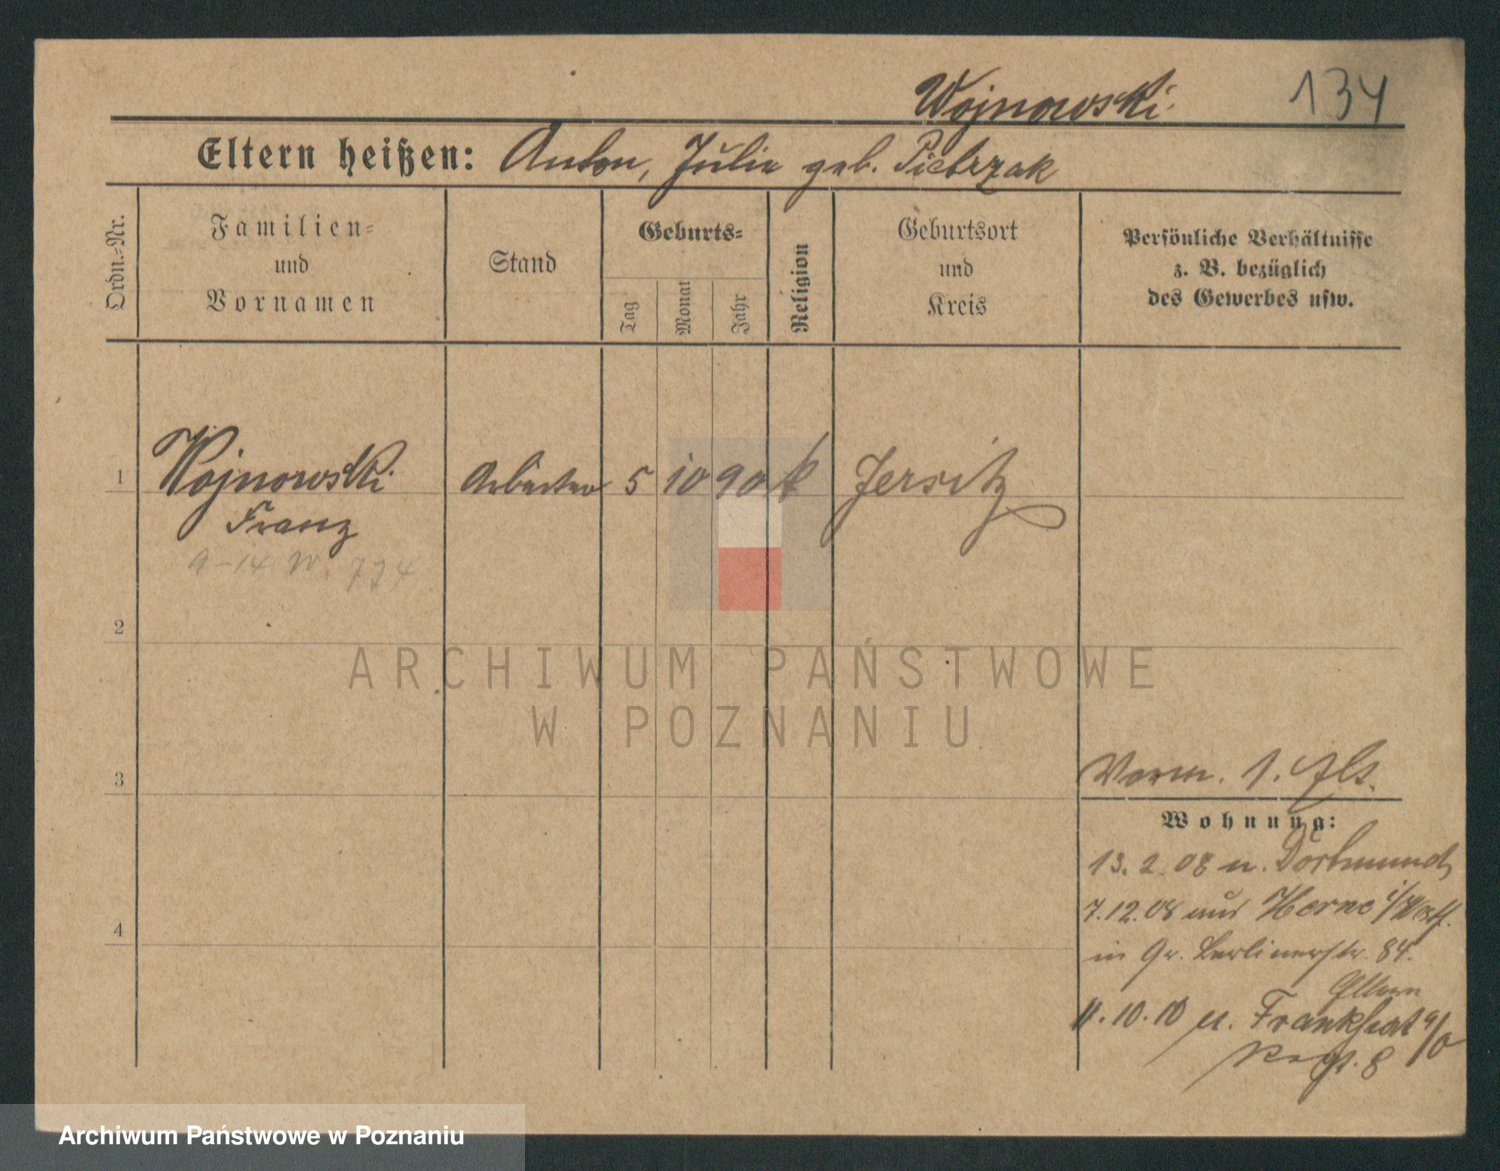 Wojnowski. 134
Eltern heißen: Anton, Julie geb. Pietrzak
Ordn.-Nr.
Familien-
und
Vornamen
Stand
Geburts-
Tag
Monat
Jahr
Religion
Geburtsort
und
Kreis
Persönliche Verhältnisse
z. B. bezüglich
des Gewerbes usw.
1 Wojnowski Arbeiter 5 10 90 k Jersitz
Franz
a-14 W. 774
2
ARCHIWUM PAŃSTWOWE
W POZNANIU
3
Verm. 1. Fls.
Wohnung:
13. 2. 08 n. Dortmund
7. 12. 08 aus Herne i/Westf.
in Gr. Berlinerstr. 84.
Eltern
11. 10. 10 n. Frankfurt a/O
Regt. 8
4
Archiwum Państwowe w Poznaniu